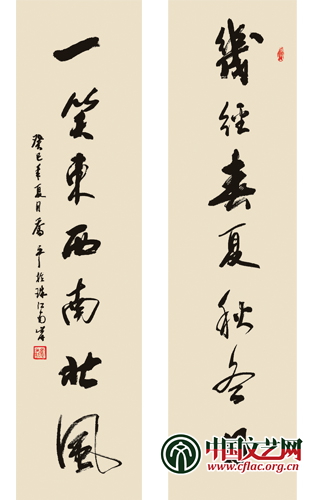 幾經春夏秋冬
一笑東西南北風
癸巳年夏月喬平於珠江南岸
中国文艺网
www.cflac.org.cn